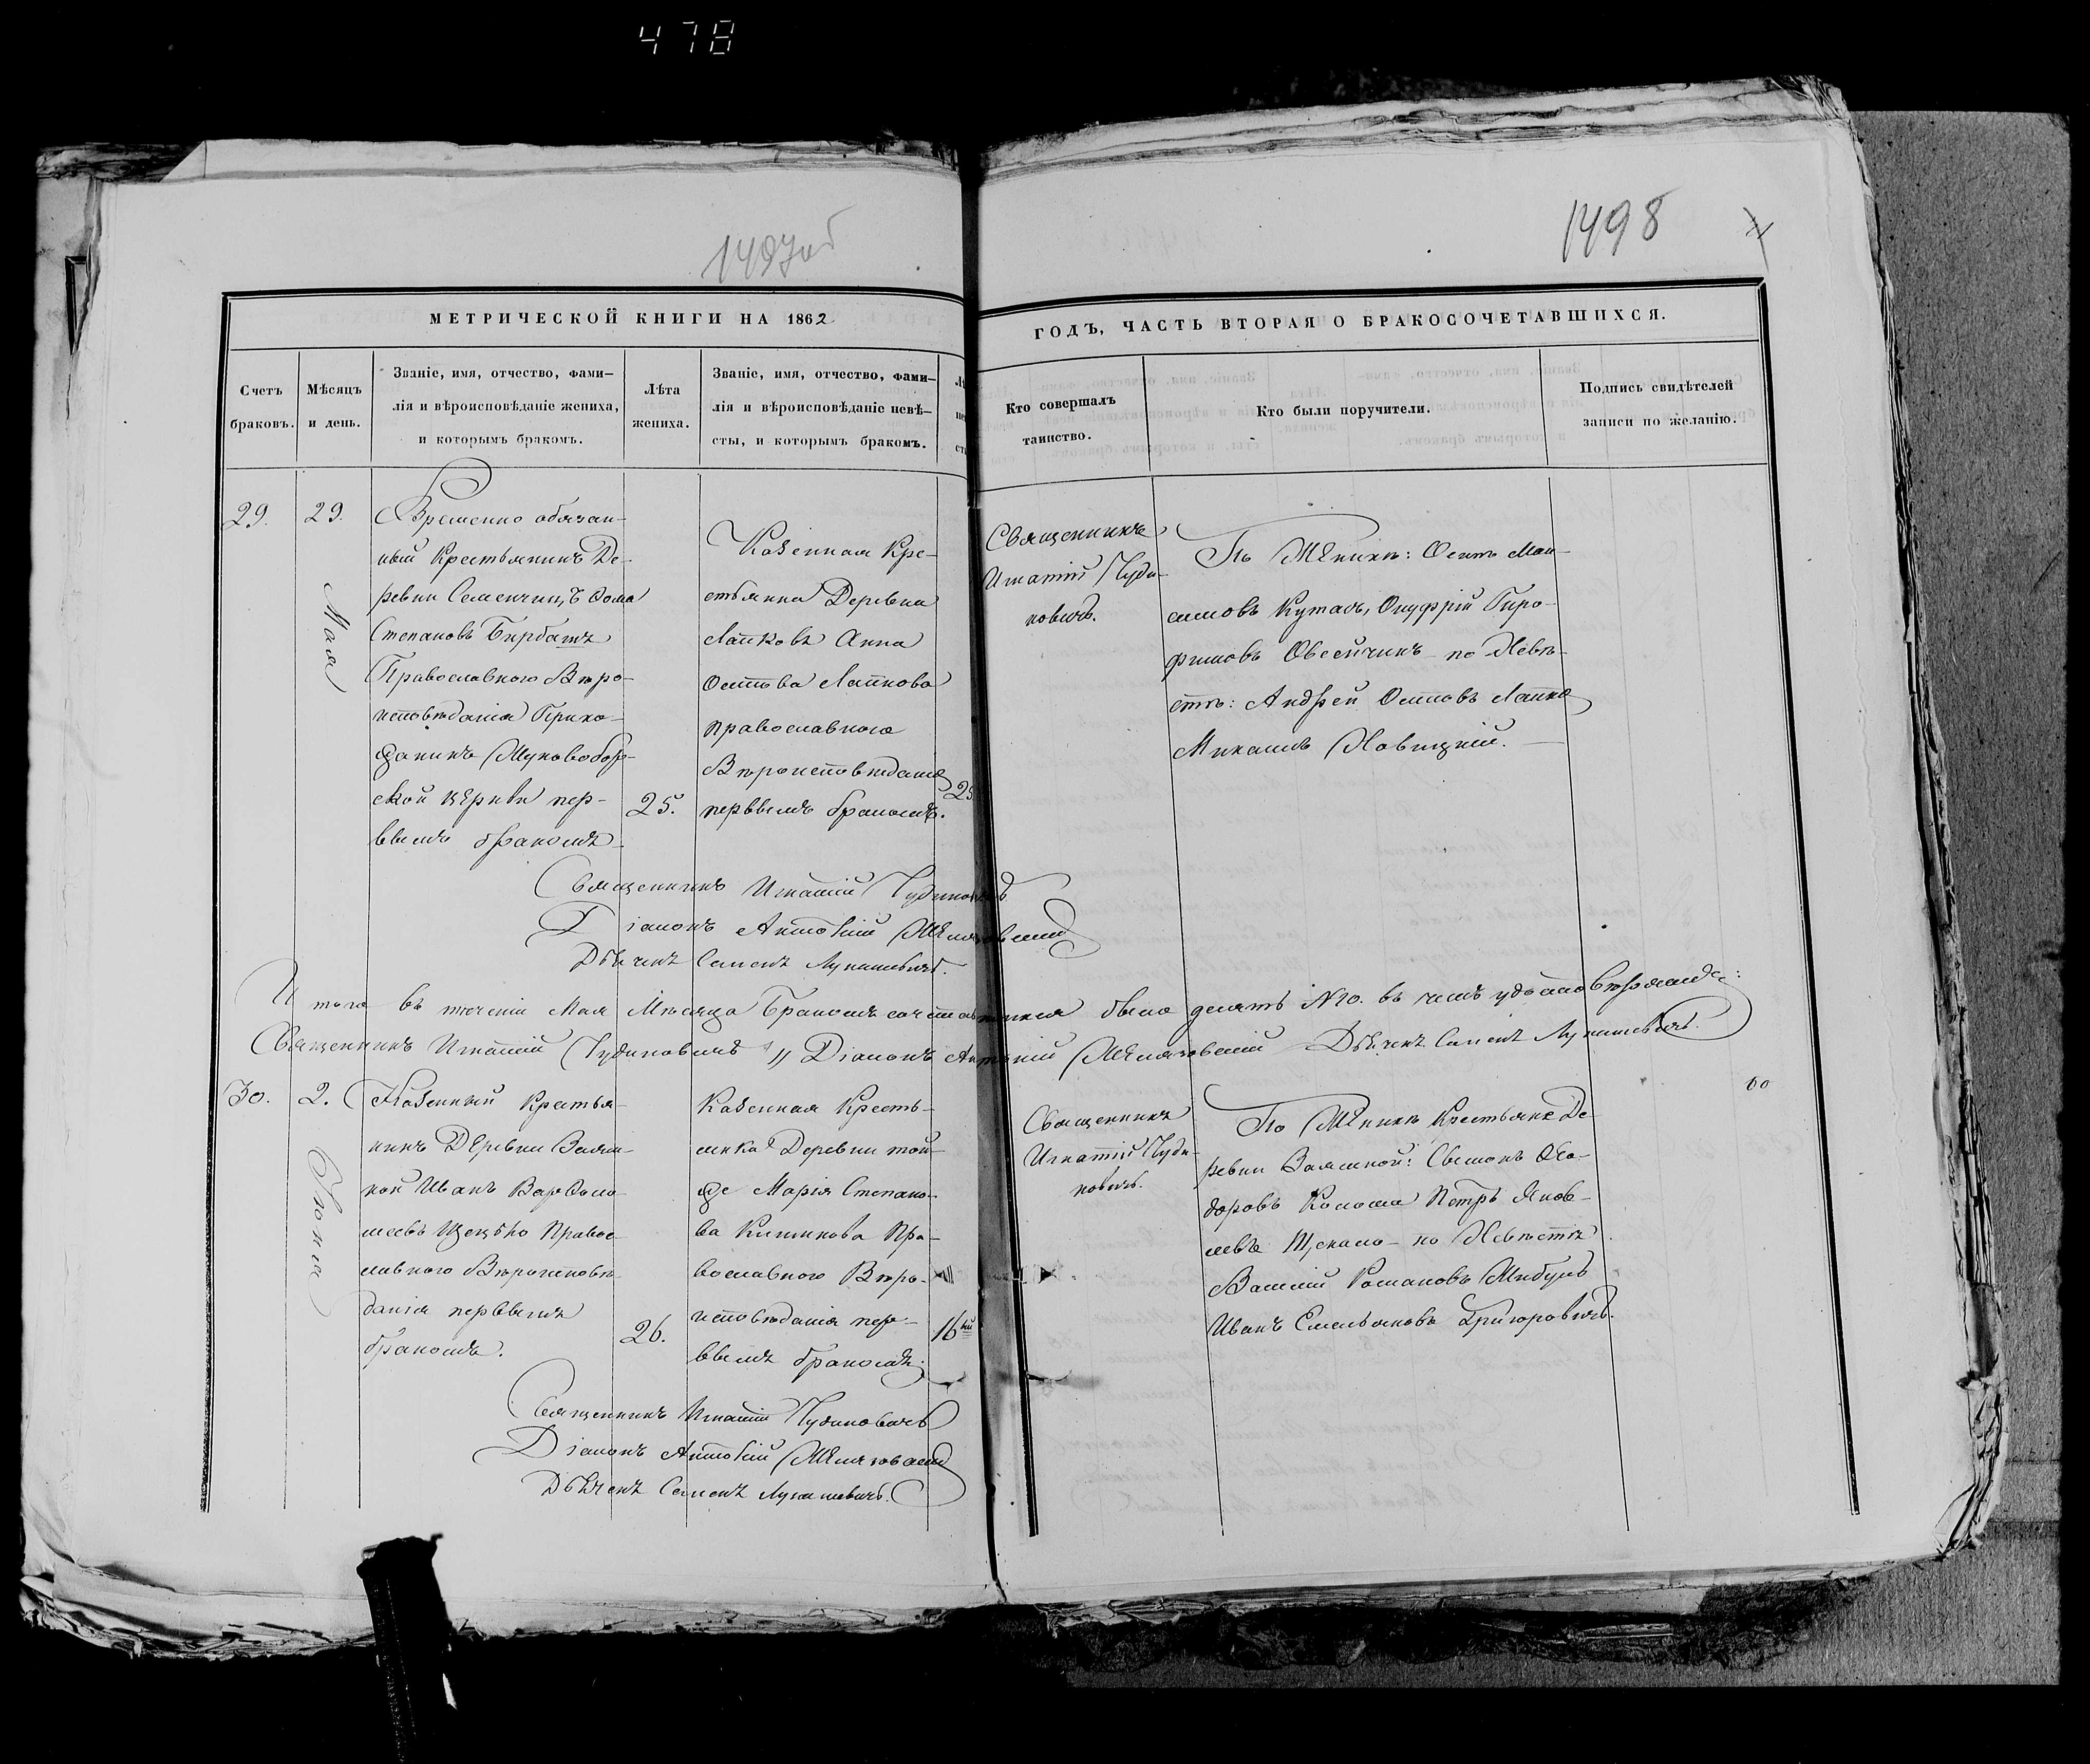 478
1497об
1498
МЕТРИЧЕСКОЙ КНИГИ НА 1862
ГОДЪ, ЧАСТЬ ВТОРАЯ О БРАКОСОЧЕТАВШИХСЯ.
Счетъ
браковъ.
Мѣсяцъ
и день.
Званіе, имя, отчество, фами-
лія и вѣроисповѣданіе жениха,
и которымъ бракомъ.
Лѣта
жениха.
Званіе, имя, отчество, фами-
лія и вѣроисповѣданіе невѣ-
сты, и которымъ бракомъ.
Кто совершалъ
таинство.
Кто были поручители.
Подпись свидѣтелей
записи по желанію.
29.
29.
Мая
Временно обязан-
ный Крестьянинъ Де-
ревни Семенчицъ Ѳома
Степановъ Бирбашъ
Православнаго Вѣро-
исповѣданія Прихо-
жанинъ
ской церкви пер-
ввымъ бракомъ
25.
Казенная Кре-
стьянка Деревни
Лапковъ Анна
Осипова Лапкова
православнаго
Вѣроисповѣданія
перввымъ бракомъ.
Священникъ
Игнатій Чуди-
новичъ.
По Женихѣ: Осипъ Мак-
симовъ Онуфрій Тро-
фимовъ Овсейчикъ по Невѣ-
стѣ: Андрей Осиповъ Лапко
Новицкій.
Священникъ Игнатій Чудиновичъ
Діаконъ Антоній
Дьячекъ Семенъ Лукашевичъ.
Итого въ теченіи Мая Мѣсяца Бракомъ сочетавшихся было десять №10. въ чемъ удостовѣряемъ:
Священникъ Игнатій Чудиновичъ Діаконъ Антоній Дьячекъ Семенъ Лукашевичъ.
30.
2.
Іюня
Казенный Крестья-
нинъ Деревни Залѣш-
ной Иванъ Варѳоло-
меевъ Православ-
лавнаго Вѣроисповѣ-
данія перввымъ
бракомъ.
26.
Казенная Кресть-
янка Деревни той-
же Марія Степано-
ва Климкова Пра-
вославнаго Вѣро-
исповѣданія пер-
ввымъ бракомъ.
16
Священникъ
Игнатій Чуди-
новичъ.
По Женихѣ Крестьяне Де-
ревни Ѳео-
доровъ Петръ Яков-
левъ по Невѣстѣ
Василій Романовъ
Иванъ Емельяновъ Григоровичъ.
Священникъ Игнатій Чудиновичъ
Діаконъ Антоній
Дьячекъ Семенъ Лукашевичъ.